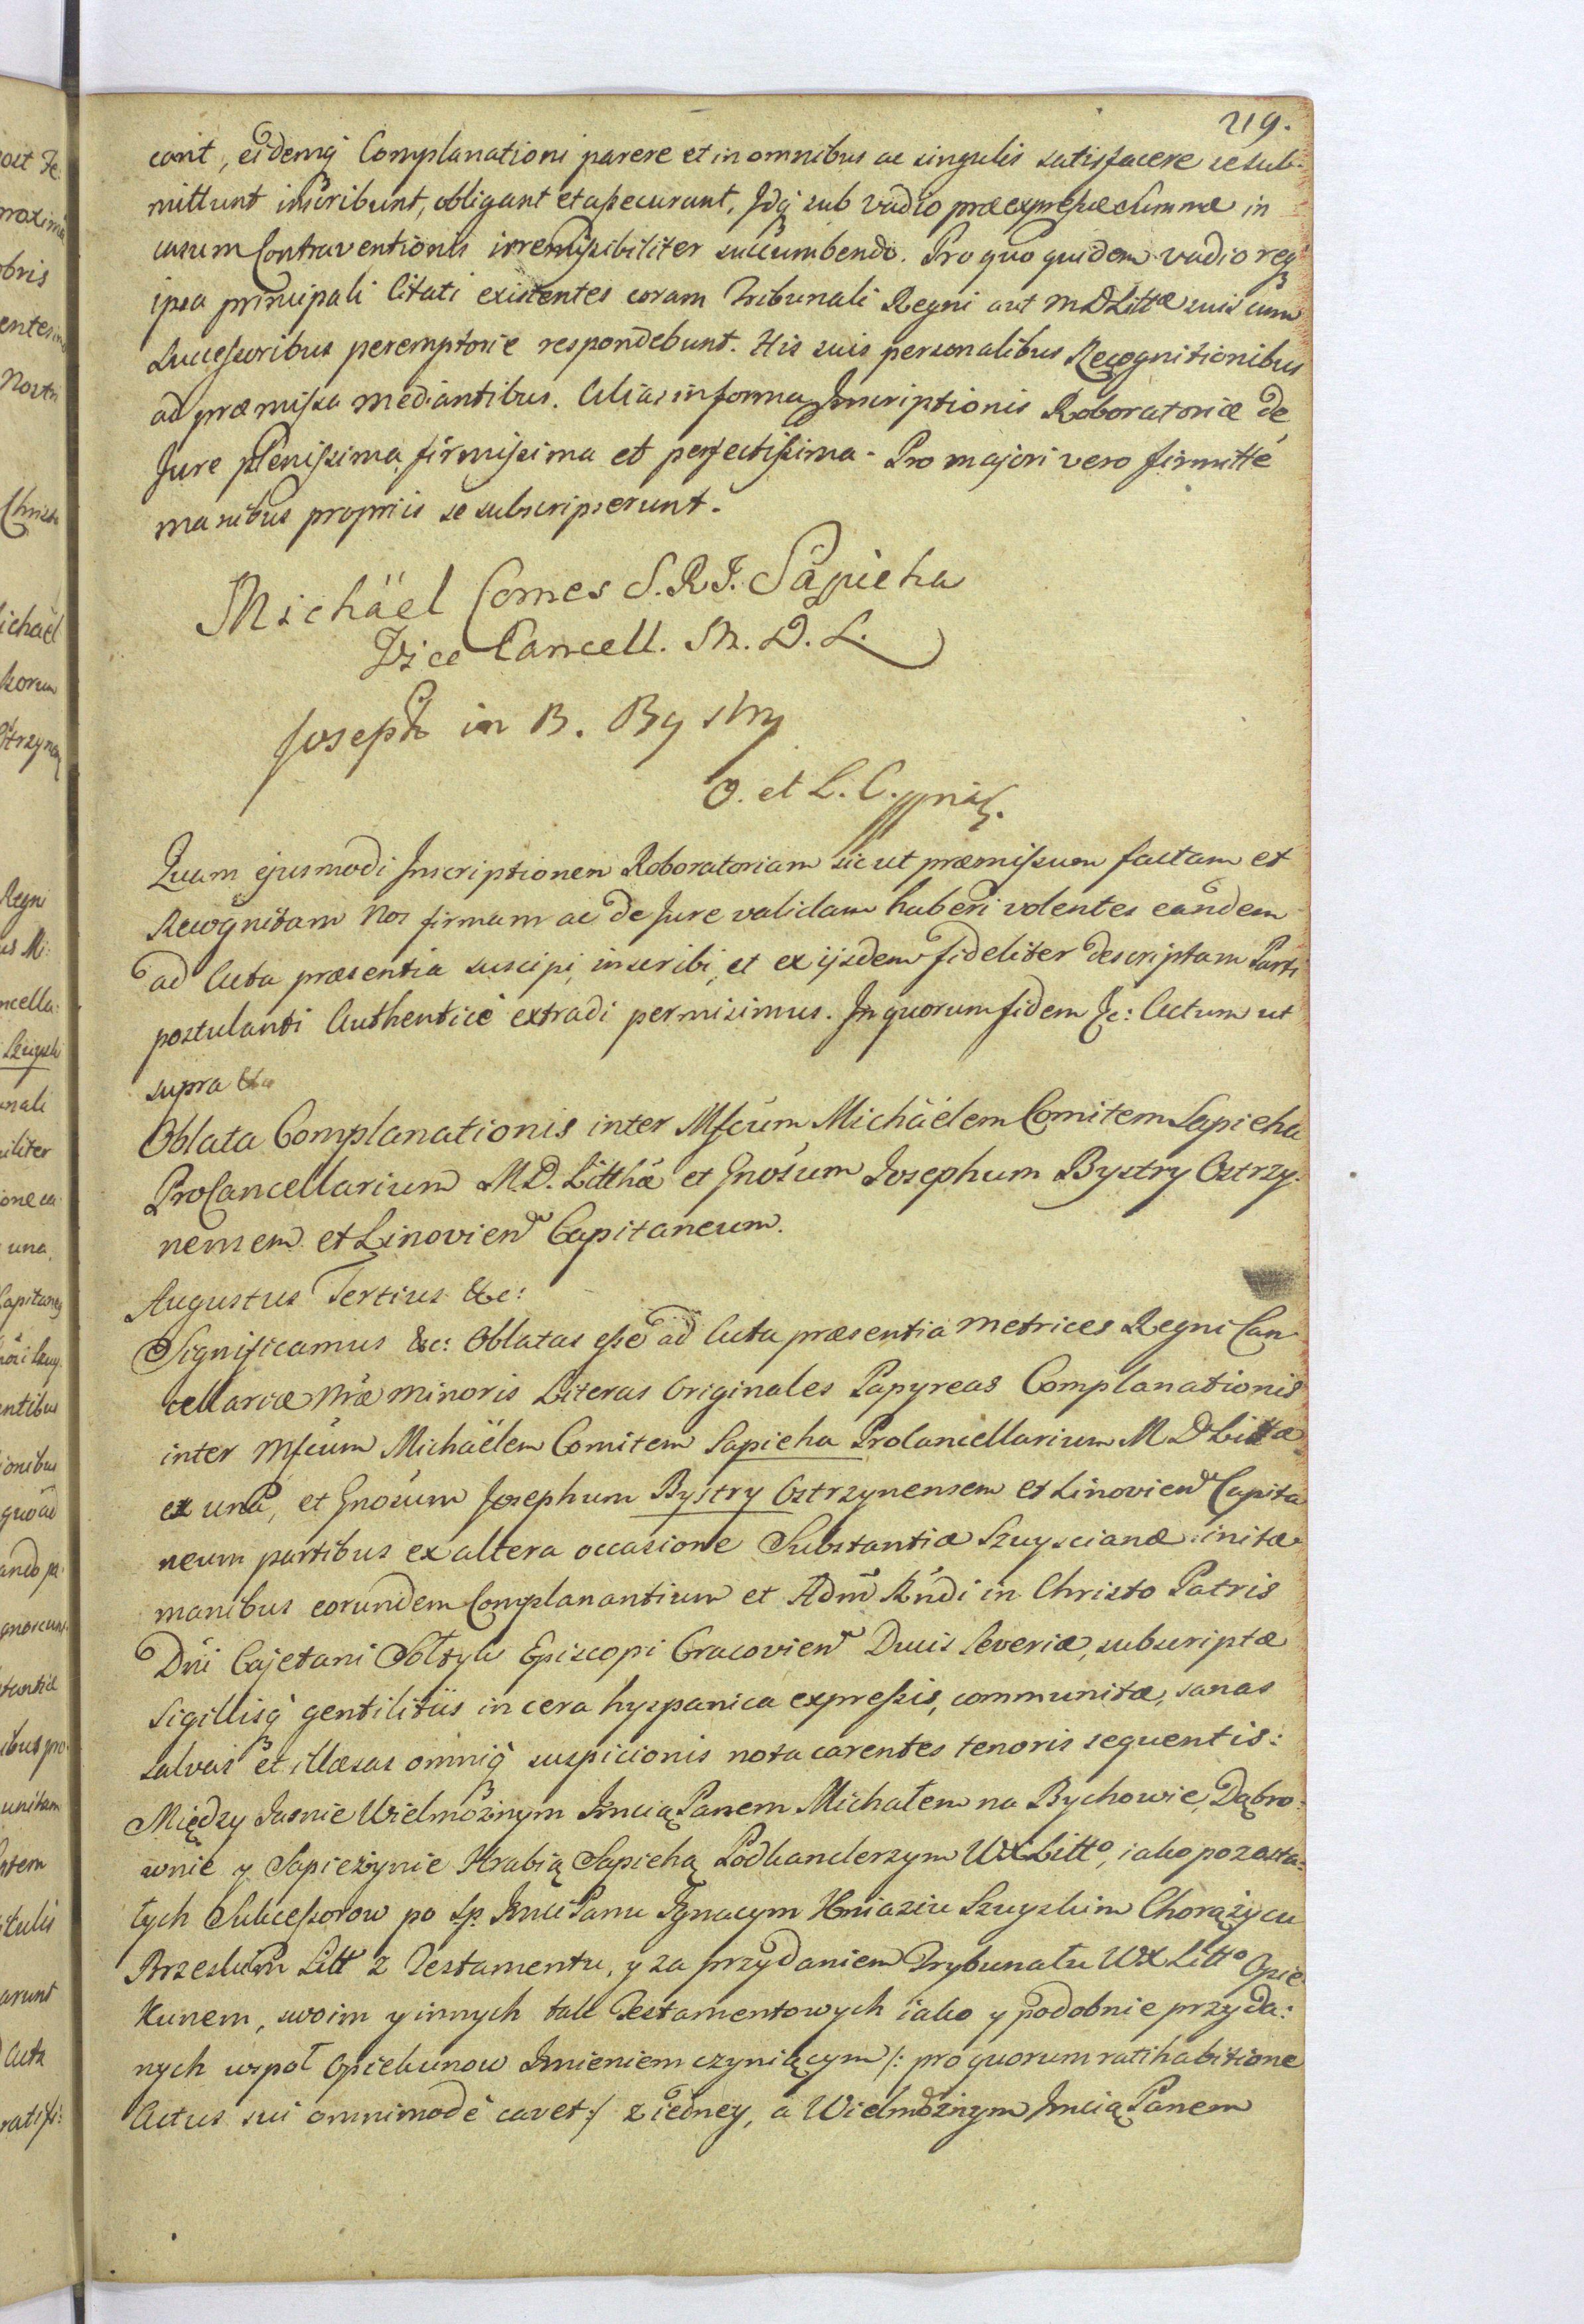 219.
cont, eidemq́ Complanationi parere et in omnibus ac singulis satisfacere se sub=
mittunt inscribunt, obligant et assecurant, Jdq́ sub vadio præexpressæ summæ in
casum Contraventionis irremissibiliter succumbendo. Pro quo quidem vadio req́
ipsa principali Citati existentes coram Tribunali Regni aut M D Littæ suis cum
Successoribus peremptorie respondebunt. His suis personalibus Recognitionibus
ad præmissa mediantibus. Alias in forma Inscriptionis Roboratoriæ de
Jure plenissima firmissima et perfectissima. Pro majori vero firmitte
manibus propriis se subscripserunt.
Michäel Comes S.R.I. Sapieha
Vice Cancell. M. D. L.
Joseph in B. Bystry
O. et L. C. mp.
Quam ejusmodi Inscriptionem Roboratoriam sic ut præmissum factam et
Recognitam Nos firmam ac de Jure validam haberi volentes eandem
ad Acta præsentia suscipi, inscribi, et ex ijsdem fideliter descriptam Parti
postulanti Authentice extradi permisimus. In quorum fidem &c: Actum ut
supra &c
Oblata Complanationis inter Mfcum Michäelem Comitem Sapieha
ProCancellarium M.D. Litthæ et Gnosum Josephum Bystry Ostrzy=
nensem et Linovien Capitaneum.
Augustus Tertius &c:
Significamus &c: Oblatas esse ad Acta præsentia Metrices Regni Can
cellariæ Nræ Minoris Literas Originales Papyreas Complanationis
inter Mfcum Michäelem Comitem Sapieha Procancellarium M D Littæ
ex una, et Gnosum Josephum Bystry Ostrzynensem et Linovien Capita
neum partibus ex altera occasione Substantiæ Szuyscianæ initæ
manibus eorundem Complanantium et Adm̃ Rndi in Christo Patris
Dni Cajetani Sołtyk Episcopi Cracovien Ducis Severiæ, subscriptæ
Sigillisq́ gentilitiis in cera hyspanica expressis, communitæ, sanas
salvas et illæsas omniq́ suspicionis nota carentes tenoris sequentis:
Między Jasnie Wielmożnym Jmcią Panem Michałem na Bychowie, Dąbro=
wnie y Sapieżynie Hrabią Sapiehą Podkanclerzym WXLitto, iako pozosta=
łych Sukcessorow po Sp. Jmci Panu Jgnacym Kniaziu Szuyskim Chorążycu
Brzeskim Litt z Testamentu, y za przydaniem Trybunału WXLitto Opie
kunem, swoim y innych tak Testamentowych iako y podobnie przyda=
nych wspoł Opiekunow Jmieniem czyniącym /: pro quorum ratihabitione
Actus sui omnimode cavet :/ z iedney, a Wielmożnym Jmcią Panem